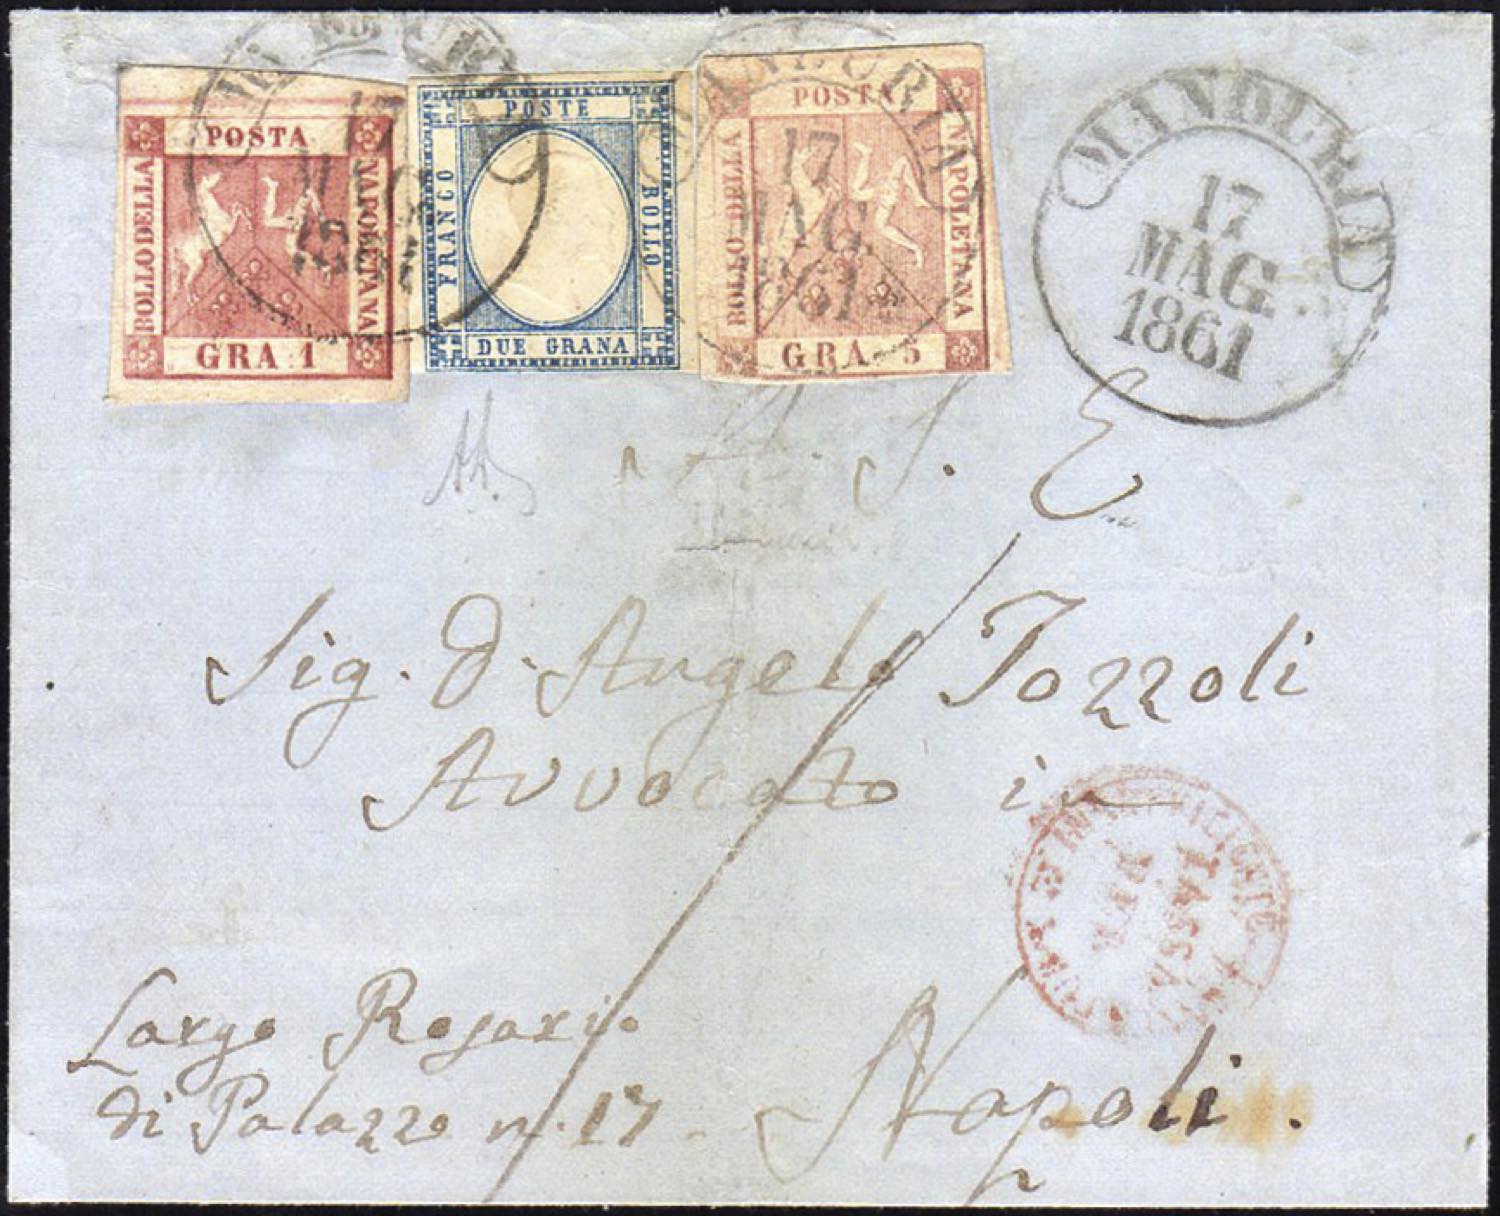 POSTA
BOLLO DELLA
NAPOLETANA
GRA 1
17
POSTE
FRANCO
BOLLO
DUE GRANA
MANDURIA
17
MAG.
1861
POSTA
BOLLO DELLA
NAPOLETANA
GRA. 5
MANDURIA
17
MAG.
1861
S. E.
Sig. D. Angelo Tozzoli
Avvocato in
TASSA
PER
Largo Rosario
di Palazzo n. 17
Napoli.